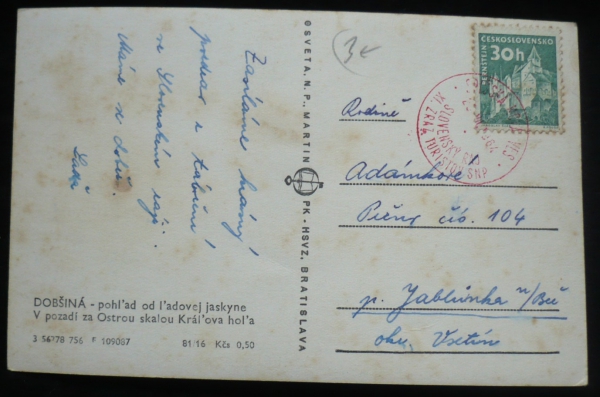 Zasíláme krásný
pozdrav z táboření
ve Slovenském ráji.
Máme se dobře.
DOBŠINÁ - pohľad od ľadovej jaskyne
V pozadí za Ostrou skalou Kráľova hoľa
3 56 78 756 F 109087 81 16 Kčs 0,50
© SVETA, N. P., MARTIN
PK - HSVZ, BRATISLAVA
3
ČESKOSLOVENSKO
30h
PERNŠTEJN
SLOVENSKÝ RAJ
XI. ZRAZ TURISTOV SNP
Rodině
Adámkově
čís. 104
p. Jablůnka n/Beč
okr. Vsetín